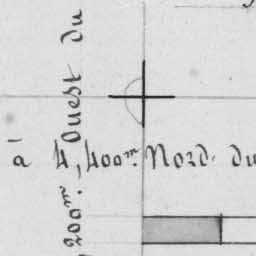 à 4,400m. Nord. du
200m. Ouest du